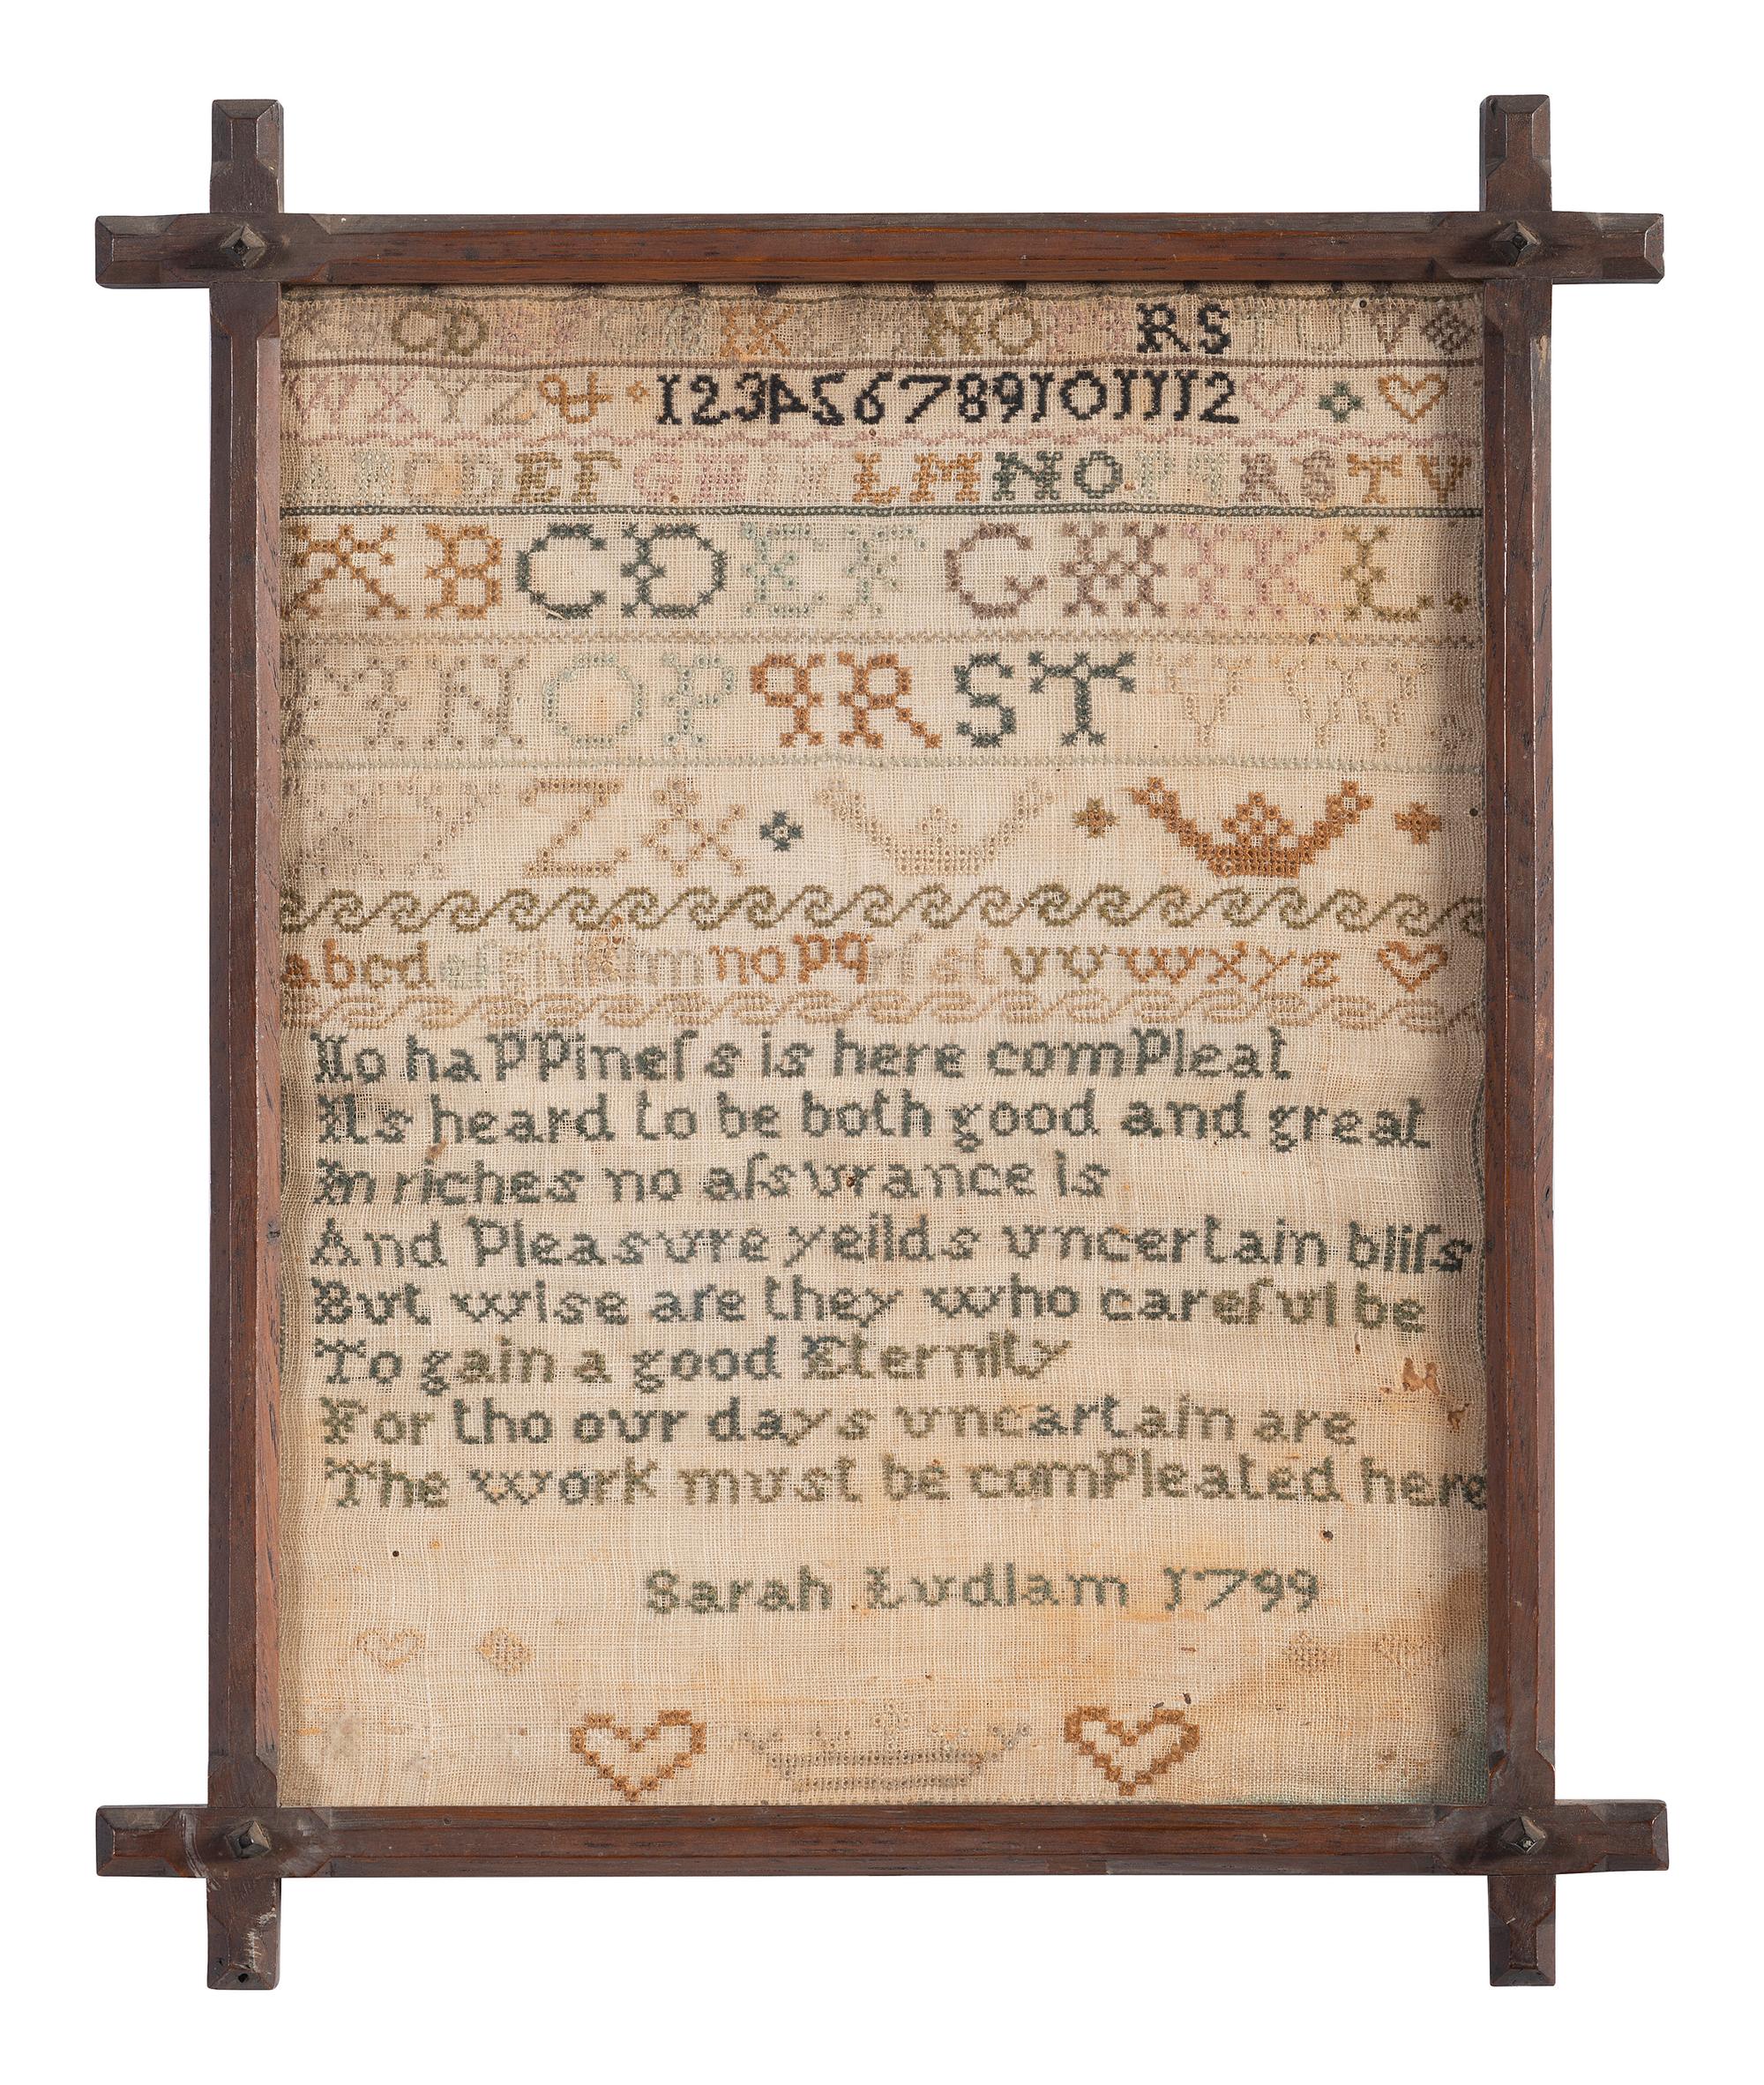 A B C D E F G H I K L M N O P q R S T U V
W X Y Z & 1 2 3 4 5 6 7 8 9 10 11 12
A B C D E F G H I K L M N O P q R S T V
A B C D E F G H I K L
M N O P q R S T V W
X Y Z &
a b c d e f g h i k l m n o p q r ſ s t v u w x y z
No haPPineſs is here comPleat
As heard to be both good and great
In riches no aſsvrance is
And Pleasvre yeilds vncertain bliſs
But wise are they who carefvl be
To gain a good Eternity
For tho ovr days vncartain are
The work mvst be comPleated here
Sarah Lvdlam 1799